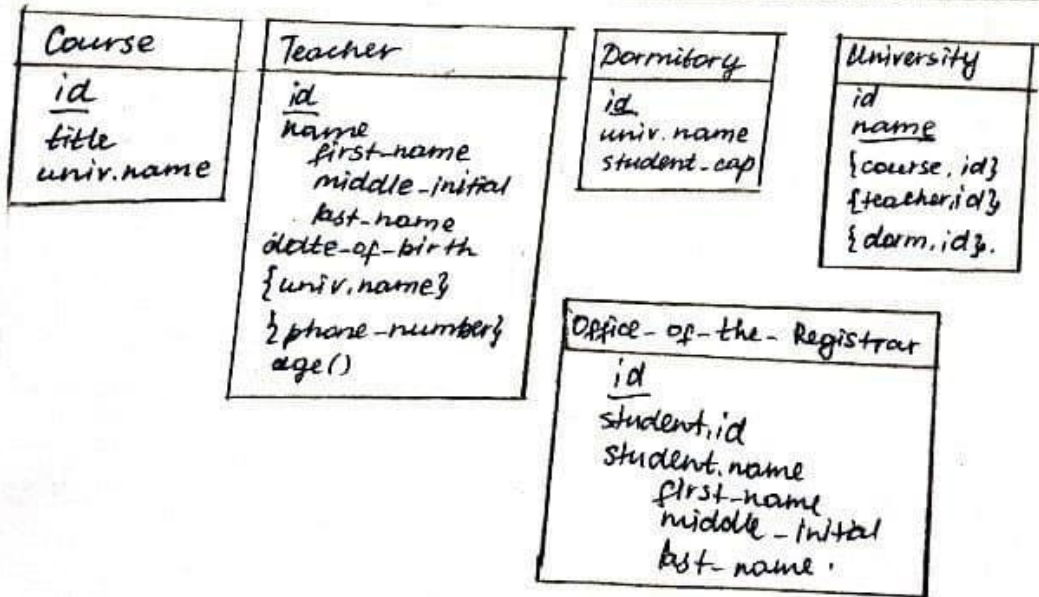 Course
id
title
univ.name
Teacher
id
name
first_name
middle_initial
last_name
date_of_birth
{univ.name}
{phone_number}
age()
Dormitory
id
univ.name
student_cap
University
id
name
{course.id}
{teacher.id}
{dorm.id}.
Office_of_the_Registrar
id
student.id
student.name
first_name
middle_initial
last_name.